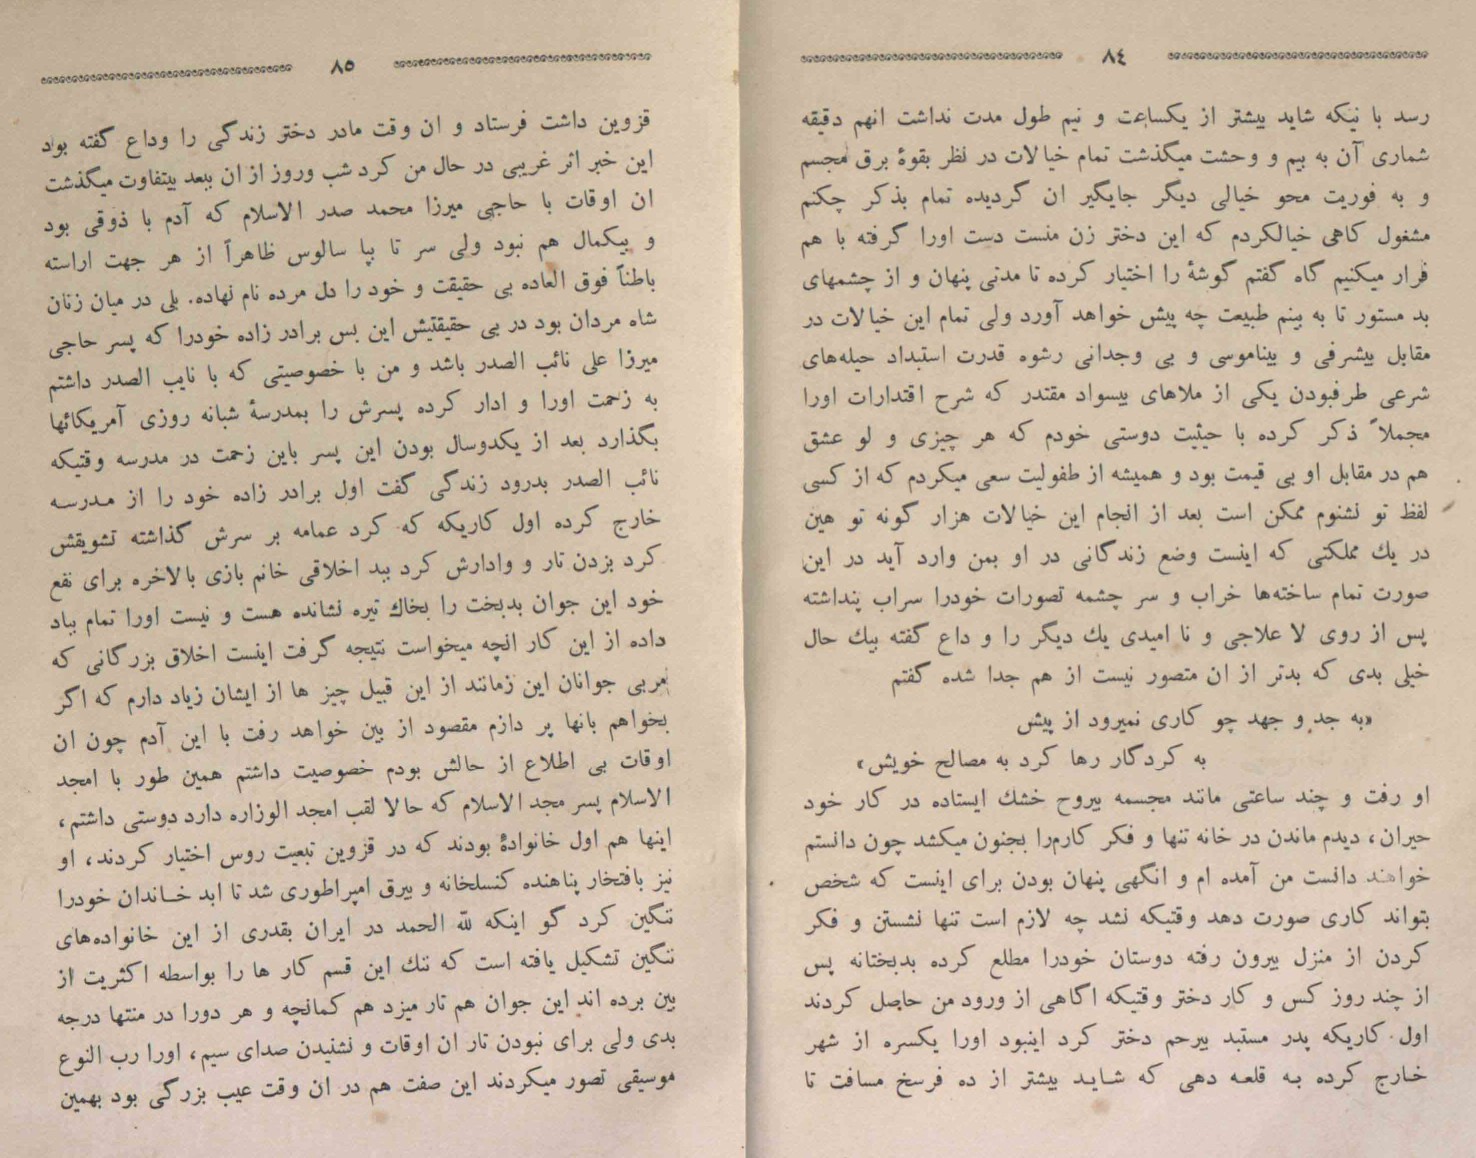 ٨٤
رسد با نیکه شاید بیشتر از یکساعت و نیم طول مدت نداشت انهم دقیقه
شماری آن به بیم و وحشت میگذشت تمام خیالات در نظر بقوهٔ برق مجسم
و به فوریت محو خیالی دیگر جایگیر ان گردیده تمام بذکر چکنم
مشغول کاهی خیالکردم که این دختر زن منست دست اورا گرفته با هم
فرار میکنیم گاه گفتم گوشهٔ را اختیار کرده تا مدتی پنهان و از چشمهای
بد مستور تا به بینم طبیعت چه پیش خواهد آورد ولی تمام این خیالات در
مقابل بیشرفی و بیناموسی و بی وجدانی رشوه قدرت استبداد حیله‌های
شرعی طرفبودن یکی از ملاهای بیسواد مقتدر که شرح اقتدارات اورا
مجملاً ذکر کرده با حیثیت دوستی خودم که هر چیزی و لو عشق
هم در مقابل او بی قیمت بود و همیشه از طفولیت سعی میکردم که از کسی
لفظ تو نشنوم ممکن است بعد از انجام این خیالات هزار گونه تو هین
در یك مملکتی که اینست وضع زندگانی در او بمن وارد آید در این
صورت تمام ساخته‌ها خراب و سر چشمه تصورات خودرا سراب پنداشته
پس از روی لا علاجی و نا امیدی یك دیگر را و داع گفته بیك حال
خیلی بدی که بدتر از ان متصور نیست از هم جدا شده گفتم
«به جد و جهد چو کاری نمیرود از پیش
به کردگار رها کرد به مصالح خویش»
او رفت و چند ساعتی مانند مجسمه بیروح خشك ایستاده در کار خود
حیران، دیدم ماندن در خانه تنها و فکر کارم‌را بجنون میکشد چون دانستم
خواهند دانست من آمده ام و انگهی پنهان بودن برای اینست که شخص
بتواند کاری صورت دهد وقتیکه نشد چه لازم است تنها نشستن و فکر
کردن از منزل بیرون رفته دوستان خودرا مطلع کرده بدبختانه پس
از چند روز کس و کار دختر وقتیکه اگاهی از ورود من حاصل کردند
اول کاریکه پدر مستبد بیرحم دختر کرد اینبود اورا یکسره از شهر
خارج کرده به قلعه دهی که شاید بیشتر از ده فرسخ مسافت تا
٨٥
قزوین داشت فرستاد و ان وقت مادر دختر زندگی را وداع گفته بود
این خبر اثر غریبی در حال من کرد شب وروز از ان ببعد بیتفاوت میگذشت
ان اوقات با حاجی میرزا محمد صدر الاسلام که آدم با ذوقی بود
و بیکمال هم نبود ولی سر تا بپا سالوس ظاهراً از هر جهت اراسته
باطناً فوق العاده بی حقیقت و خود را دل مرده نام نهاده. بلی در میان زنان
شاه مردان بود در بی حقیقتیش این بس برادر زاده خودرا که پسر حاجی
میرزا علی نائب الصدر باشد و من با خصوصیتی که با نایب الصدر داشتم
به زحمت اورا و ادار کرده پسرش را بمدرسهٔ شبانه روزی آمریکائها
بگذارد بعد از یکدوسال بودن این پسر باین زحمت در مدرسه وقتیکه
نائب الصدر بدرود زندگی گفت اول برادر زاده خود را از مدرسه
خارج کرده اول کاریکه که کرد عمامه بر سرش گذاشته تشویقش
کرد بزدن تار و وادارش کرد ببد اخلاقی خانم بازی بالاخره برای نفع
خود این جوان بدبخت را بخاك تیره نشانده هست و نیست اورا تمام بباد
داده از این کار انچه میخواست نتیجه گرفت اینست اخلاق بزرگانی که
مربی جوانان این زمانند از این قبیل چیز ها از ایشان زیاد دارم که اگر
بخواهم بانها پر دازم مقصود از بین خواهد رفت با این آدم چون ان
اوقات بی اطلاع از حالش بودم خصوصیت داشتم همین طور با امجد
الاسلام پسر مجد الاسلام که حالا لقب امجد الوزاره دارد دوستی داشتم،
اینها هم اول خانوادهٔ بودند که در قزوین تبعیت روس اختیار کردند، او
نیز بافتخار پناهنده کنسلخانه و بیرق امپراطوری شد تا ابد خاندان خودرا
ننگین کرد گو اینکه لله الحمد در ایران بقدری از این خانواده‌های
ننگین تشکیل یافته است که ننك این قسم کار ها را بواسطه اکثریت از
بین برده اند این جوان هم تار میزد هم کمانچه و هر دورا در منتها درجه
بدی ولی برای نبودن تار ان اوقات و نشنیدن صدای سیم، اورا رب النوع
موسیقی تصور میکردند این صفت هم در ان وقت عیب بزرگی بود بهمین